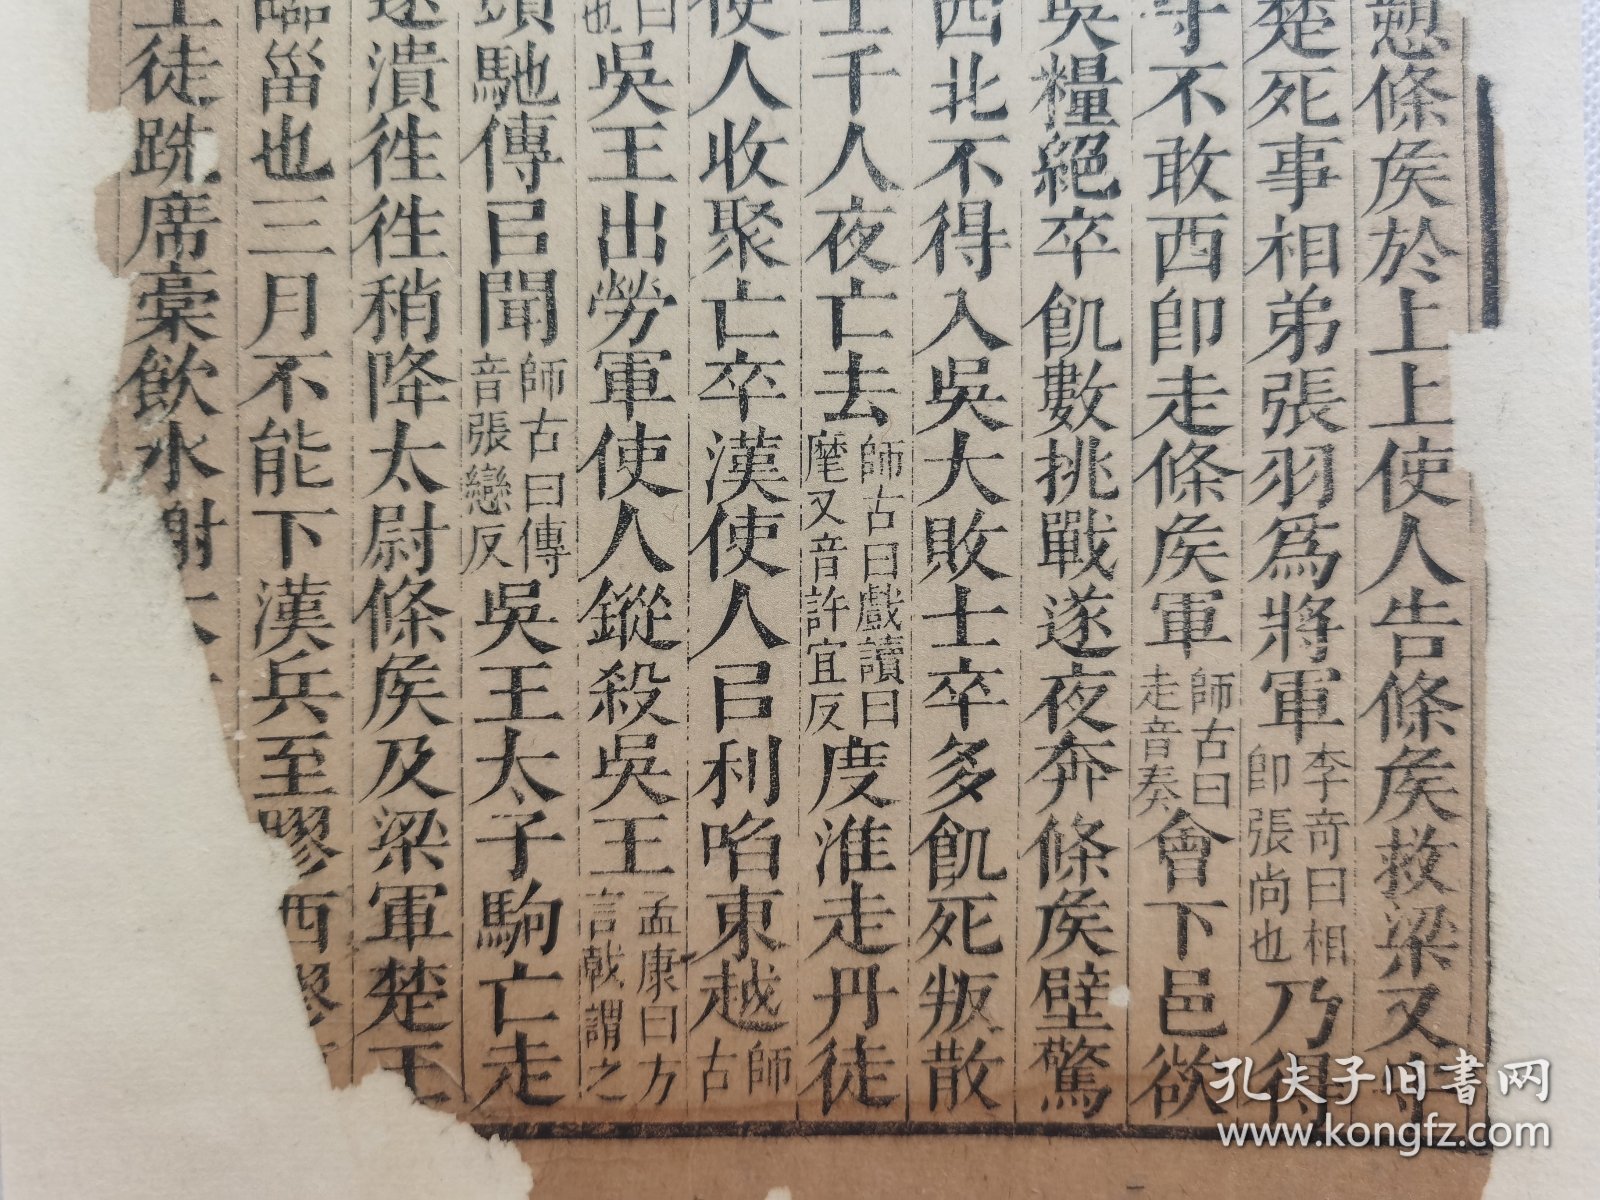 愬條矦於上上使人告條矦救梁又守
楚死事相弟張羽爲將軍李奇曰相卽張尚也乃得
守不敢西卽走條矦軍師古曰走音奏會下邑欲
吳糧絕卒飢數挑戰遂夜奔條矦壁驚
西北不得入吳大敗士卒多飢死叛散
士千人夜亡去師古曰戲讀曰麾又音許宜反度淮走丹徒
使人收聚亡卒漢使人㠯利啗東越師古
曰也吳王出勞軍使人鏦殺吳王孟康曰方言戟謂之
頭馳傳㠯聞師古曰傳音張戀反吳王太子駒亡走
遂潰徃徃稍降太尉條矦及梁軍楚王
臨甾也三月不能下漢兵至膠西膠
王徒跣席稾飲水謝
孔夫子旧書网
www.kongfz.com